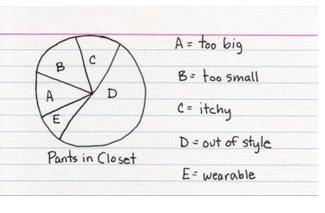 A = too big
B
C
B = too small
A
D
C = itchy
E
D = out of style
Pants in Closet
E = wearable